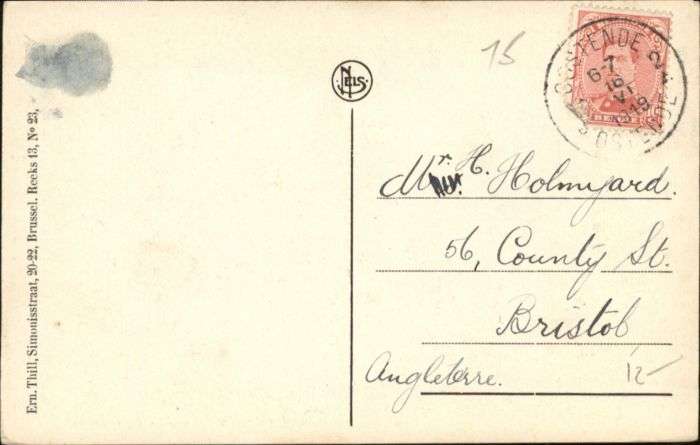 Ern. Thill, Simonisstraat, 20-22, Brussel. Reeks 13, No 23,
NELS
15
OOSTENDE 2
6-7
19-
V
1919
OSTENDE
Mr. H. Holmyard.
56, County St.
Bristol,
Angleterre.
12-